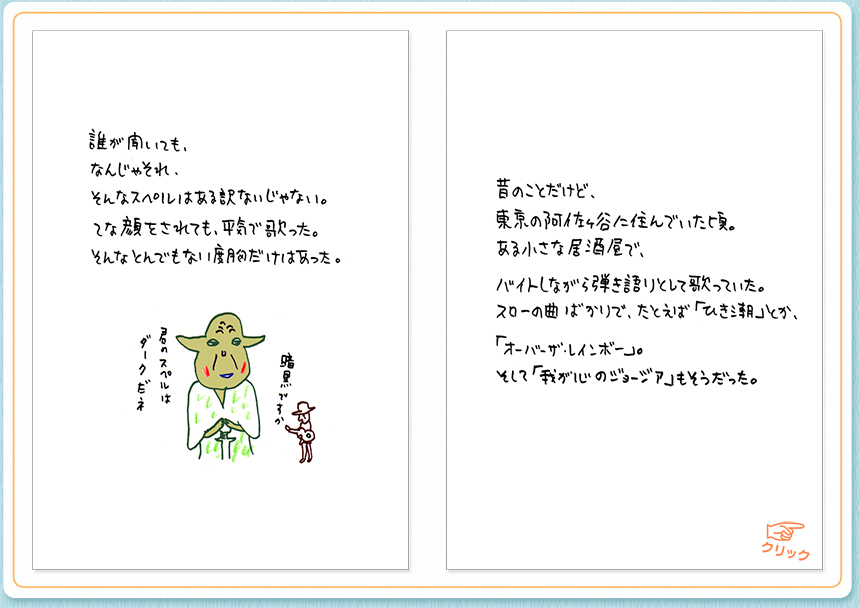 誰が聞いても、
なんじゃそれ、
そんなスペルはある訳ないじゃない。
てな顔をされても、平気で歌った。
そんなとんでもない度胸だけはあった。
君のスペルは
ダークだネ
暗黒ですか
昔のことだけど、
東京の阿佐ヶ谷に住んでいた頃。
ある小さな居酒屋で、
バイトしながら弾き語りとして歌っていた。
スローの曲ばかりで、たとえば「ひき潮」とか、
「オーバー・ザ・レインボー」。
そして「我が心のジョージア」もそうだった。
クリック